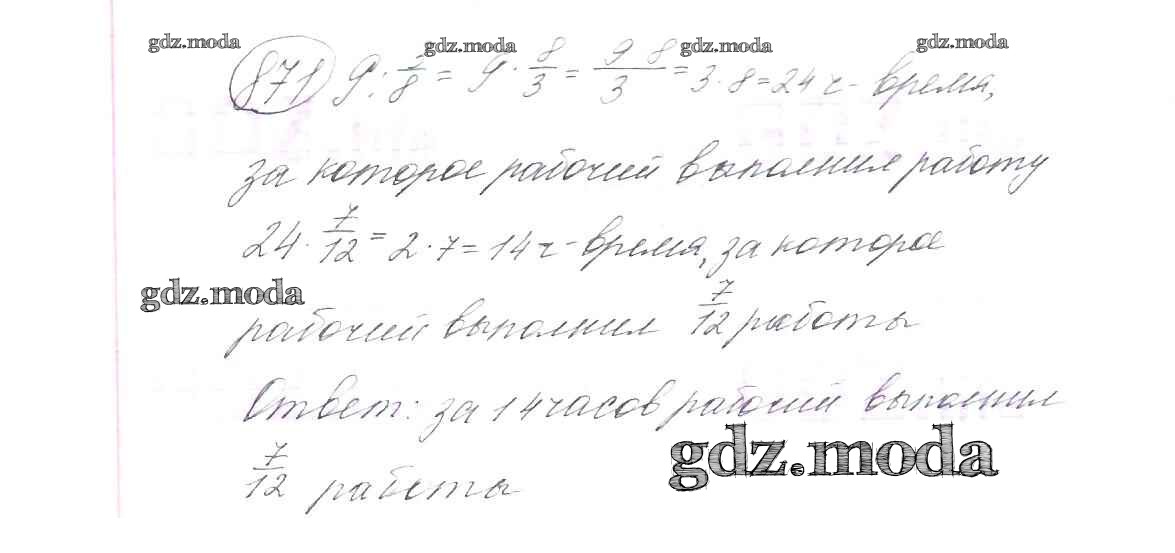 gdz.moda gdz.moda gdz.moda gdz.moda
871 9 : 3/8 = 9 · 8/3 = 9 8/3 = 3 · 8 = 24 ч - время,
за которое рабочий выполнил работу
24 · 7/12 = 2 · 7 = 14 ч - время, за которое
gdz.moda
рабочий выполнил 7/12 работы
Ответ: за 14 часов рабочий выполнил
gdz.moda
7/12 работы